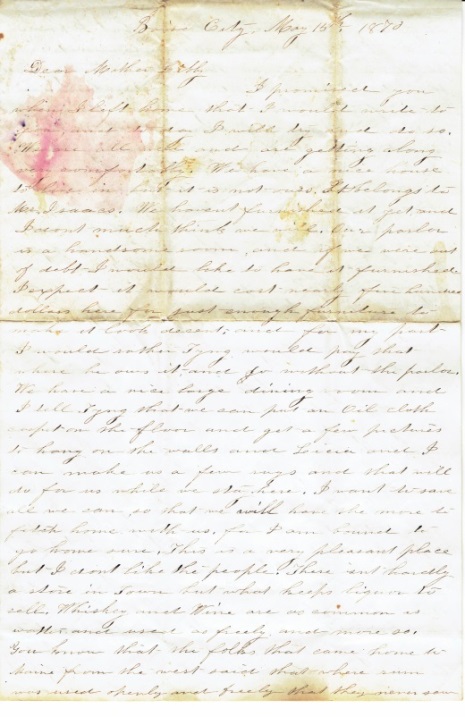 City, May 15th 1870
Dear Mother
I promised you
when I left home that I would write to
I will try and do so.
We are all and are getting along
comfortably. We have a nice house
to live in, but it is not ours. It belongs to
Mr. Isaacs. We havent furnished it yet and
I dont much think we will. Our parlor
is a handsome room, and if we were out
of debt I would like to have it furnished
I expect it would cost nearly five hundred
dollars here for just enough furniture to
make it look decent; and for my part
I would rather would pay that
where he ows it and go without the parlor.
We have a nice large dining room and
I tell that we can put an Oil cloth
on the floor and get a few pictures
to hang on the walls and and I
can make us a few rugs and that will
do for us while we stay here. I want to save
all we can so that we will have the more to
fetch home with us, for I am bound to
go home sure. This is a very pleasant place
but I dont like the people. There isnt hardly
a store in Town but what keeps liquor to
sell. Whiskey and Wine are as common as
water and used as freely and more so.
You know that the folks that came home to
Maine from the west said that where rum
was used openly and freely that they never saw